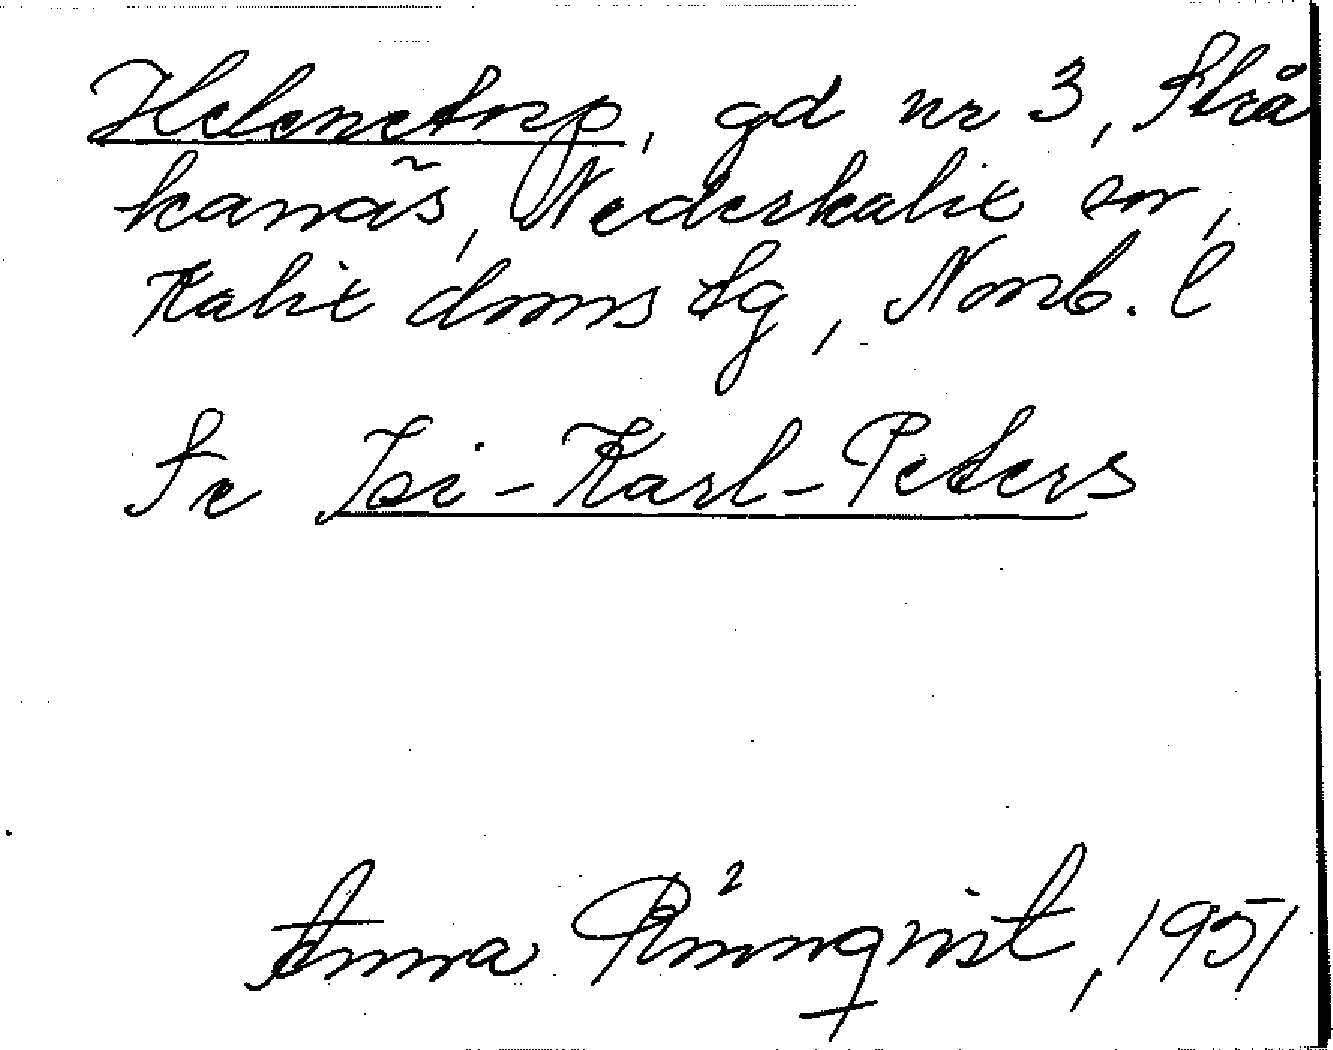 Helenetorp, gd nr 3, Strå
kanäs, Nederkalix sn,
Kalix doms tg, Norrb. l
Se Isi-Karl-Peters
Anna Rönnqvist, 1951